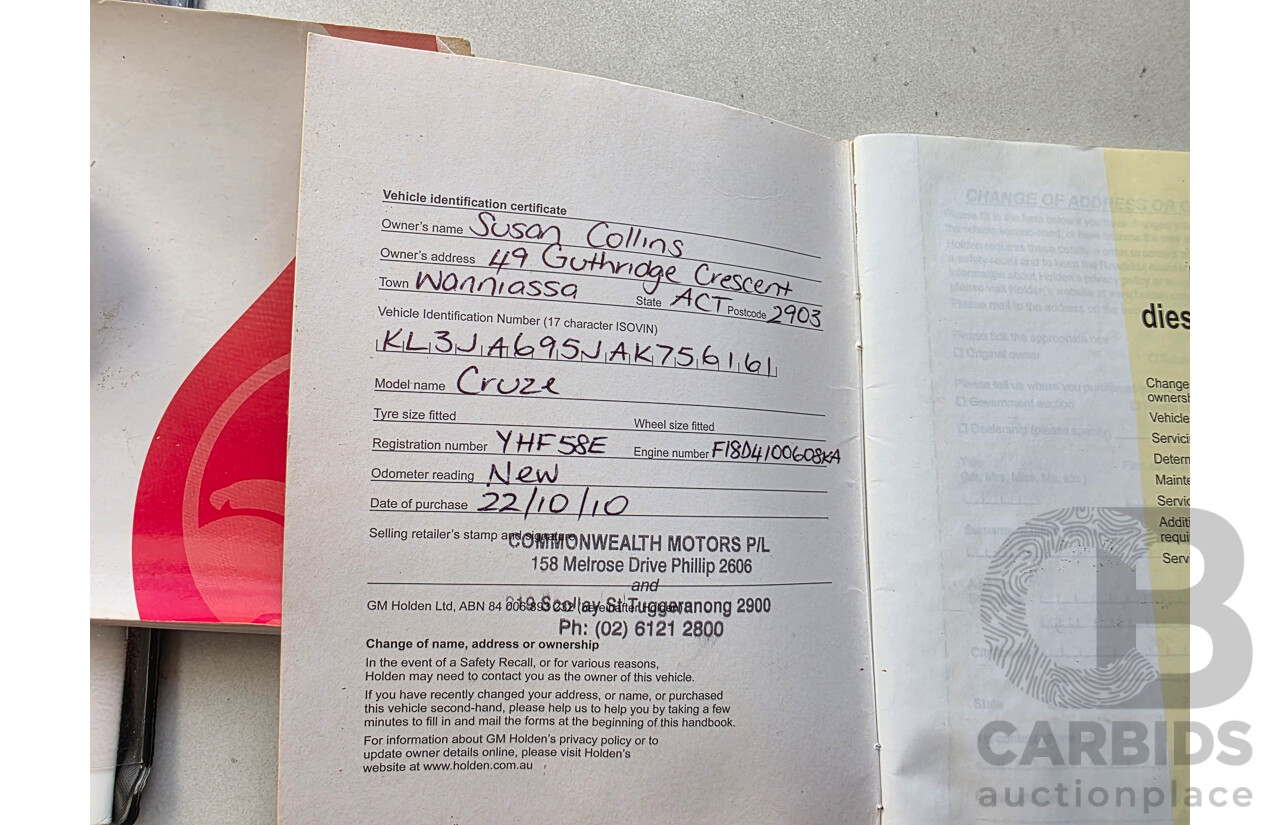 Vehicle identification certificate
Owner's name Susan Collins
Owner's address 49 Guthridge Crescent
Town Wanniassa State ACT Postcode 2903
Vehicle Identification Number (17 character ISOVIN)
KL3JA695JAK756161
Model name Cruze
Tyre size fitted Wheel size fitted
Registration number YHF58E Engine number F18D4100608KA
Odometer reading New
Date of purchase 22/10/10
Selling retailer's stamp and signature
COMMONWEALTH MOTORS P/L
158 Melrose Drive Phillip 2606
and
Tuggeranong 2900
GM Holden Ltd, ABN 84
Ph: (02) 6121 2800
Change of name, address or ownership
In the event of a Safety Recall, or for various reasons,
Holden may need to contact you as the owner of this vehicle.
If you have recently changed your address, or name, or purchased
this vehicle second-hand, please help us to help you by taking a few
minutes to fill in and mail the forms at the beginning of this handbook.
For information about GM Holden's privacy policy or to
update owner details online, please visit Holden's
website at www.holden.com.au
CHANGE OF ADDRESS OR
Please tick the appropriate box
Original owner
Government auction
Dealership (please specify)
dies
Change
ownersh
Vehicle
Servici
Determ
Mainte
Servic
Additi
requi
Serv
CB
CARBIDS
auctionplace